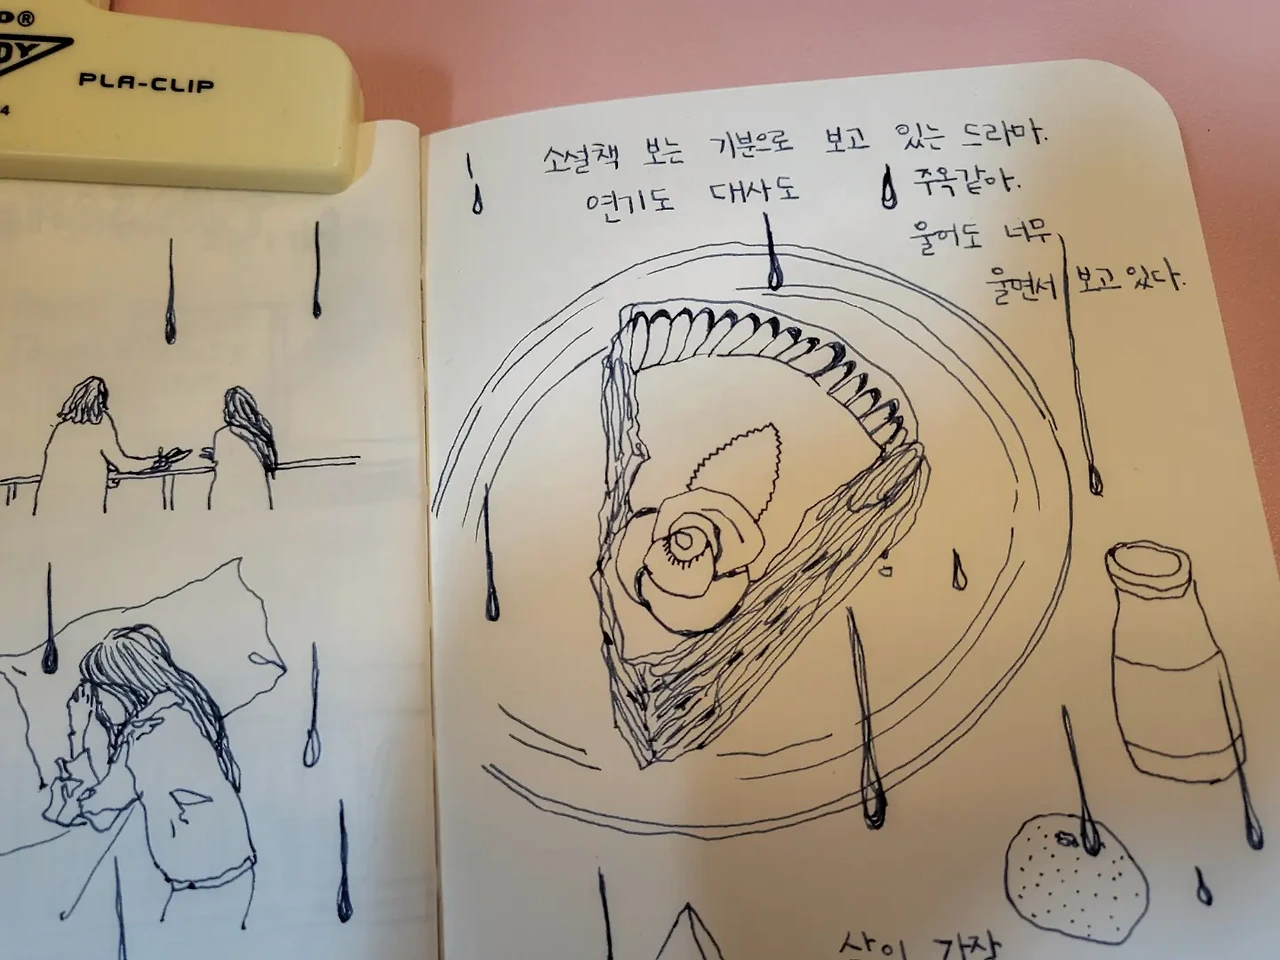 PLA-CLIP
4
소설책 보는 기분으로 보고 있는 드라마.
연기도 대사도 주옥같아.
울어도 너무
울면서 보고 있다.
삶이 가장